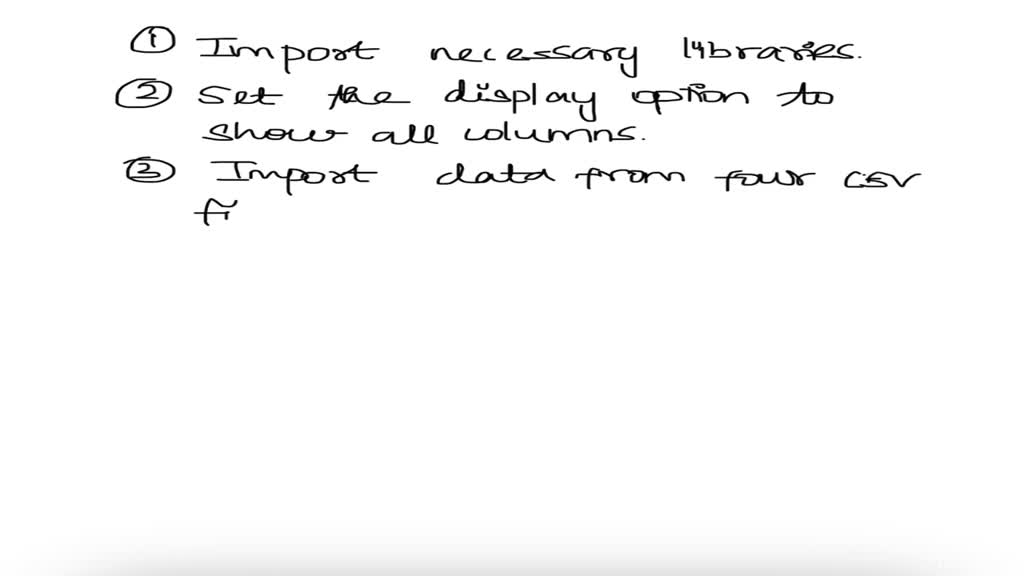 ① Import necessary libraries.
② Set the display option to
show all columns.
③ Import data from four CSV
fi